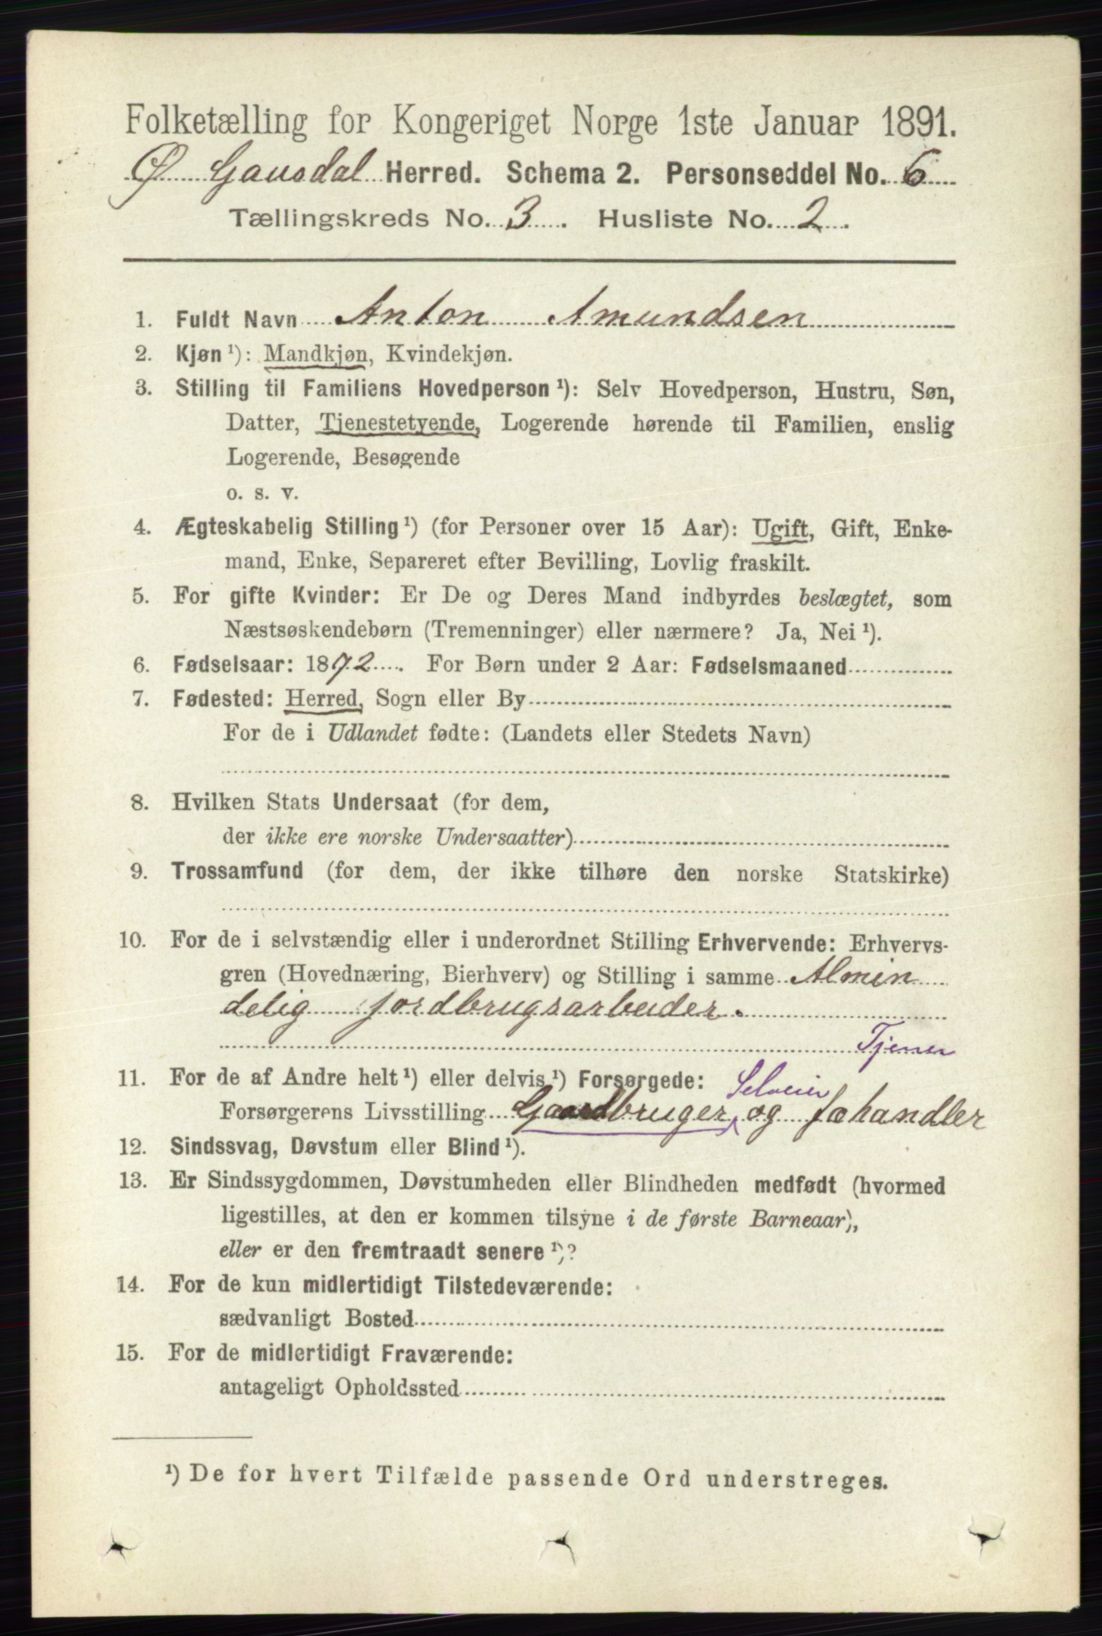 Folketælling for Kongeriget Norge 1ste Januar 1891.
Ø Gausdal Herred. Schema 2. Personseddel No. 6
Tællingskreds No. 3. Husliste No. 2.
1. Fuldt Navn Anton Amundsen
2. Kjøn ¹): Mandkjøn, Kvindekjøn.
3. Stilling til Familiens Hovedperson ¹): Selv Hovedperson, Hustru, Søn,
Datter, Tjenestetyende, Logerende hørende til Familien, enslig
Logerende, Besøgende
o. s. v.
4. Ægteskabelig Stilling ¹) (for Personer over 15 Aar): Ugift, Gift, Enke-
mand, Enke, Separeret efter Bevilling, Lovlig fraskilt.
5. For gifte Kvinder: Er De og Deres Mand indbyrdes beslægtet, som
Næstsøskendebørn (Tremenninger) eller nærmere? Ja, Nei ¹).
6. Fødselsaar: 1872. For Børn under 2 Aar: Fødselsmaaned
7. Fødested: Herred, Sogn eller By
For de i Udlandet fødte: (Landets eller Stedets Navn)
8. Hvilken Stats Undersaat (for dem,
der ikke ere norske Undersaatter)
9. Trossamfund (for dem, der ikke tilhøre den norske Statskirke)
10. For de i selvstændig eller i underordnet Stilling Erhvervende: Erhvervs-
gren (Hovednæring, Bierhverv) og Stilling i samme Almin
delig jordbrugsarbeider.
Tjener
11. For de af Andre helt ¹) eller delvis ¹) Forsørgede: Selveier
Forsørgerens Livsstilling Gaardbruger og Fæhandler
12. Sindssvag, Døvstum eller Blind ¹).
13. Er Sindssygdommen, Døvstumheden eller Blindheden medfødt (hvormed
ligestilles, at den er kommen tilsyne i de første Barneaar),
eller er den fremtraadt senere ¹)?
14. For de kun midlertidigt Tilstedeværende:
sædvanligt Bosted
15. For de midlertidigt Fraværende:
antageligt Opholdssted
¹) De for hvert Tilfælde passende Ord understreges.